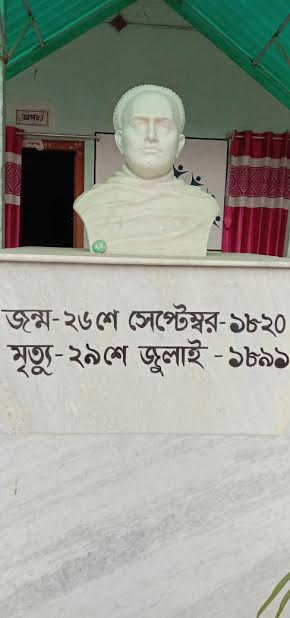 অপলা
জন্ম-২৬শে সেপ্টেম্বর-১৮২০
মৃত্যু-২৯শে জুলাই -১৮৯১